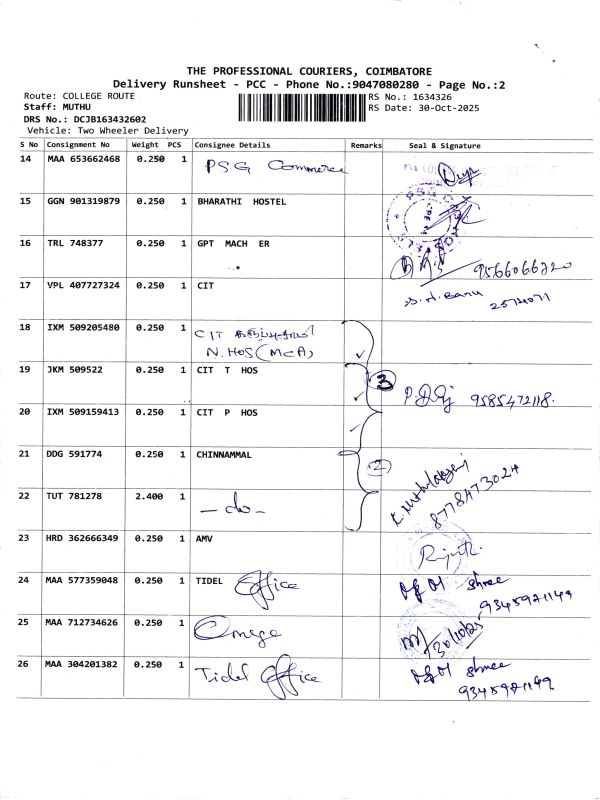 THE PROFESSIONAL COURIERS, COIMBATORE
Delivery Runsheet - PCC - Phone No.:9047080280 - Page No.:2
Route: COLLEGE ROUTE
Staff: MUTHU
DRS No.: DCJB163432602
Vehicle: Two Wheeler Delivery
RS No.: 1634326
RS Date: 30-Oct-2025
S No Consignment No Weight PCS Consignee Details Remarks Seal & Signature
14 MAA 653662468 0.250 1 PSG Commerce
15 GGN 901319879 0.250 1 BHARATHI HOSTEL
16 TRL 748377 0.250 1 GPT MACH ER 9566066720
17 VPL 407727324 0.250 1 CIT
18 IXM 509205480 0.250 1 CIT
N. HOS (MCA)
19 JKM 509522 0.250 1 CIT T HOS 3 9585472118.
20 IXM 509159413 0.250 1 CIT P HOS
21 DDG 591774 0.250 1 CHINNAMMAL 2 8778473024
22 TUT 781278 2.400 1 - do -
23 HRD 362666349 0.250 1 AMV
24 MAA 577359048 0.250 1 TIDEL Office shree
9345971149
25 MAA 712734626 0.250 1 Omega 30/10/25
26 MAA 304201382 0.250 1 Tidel Office shree
9345971149